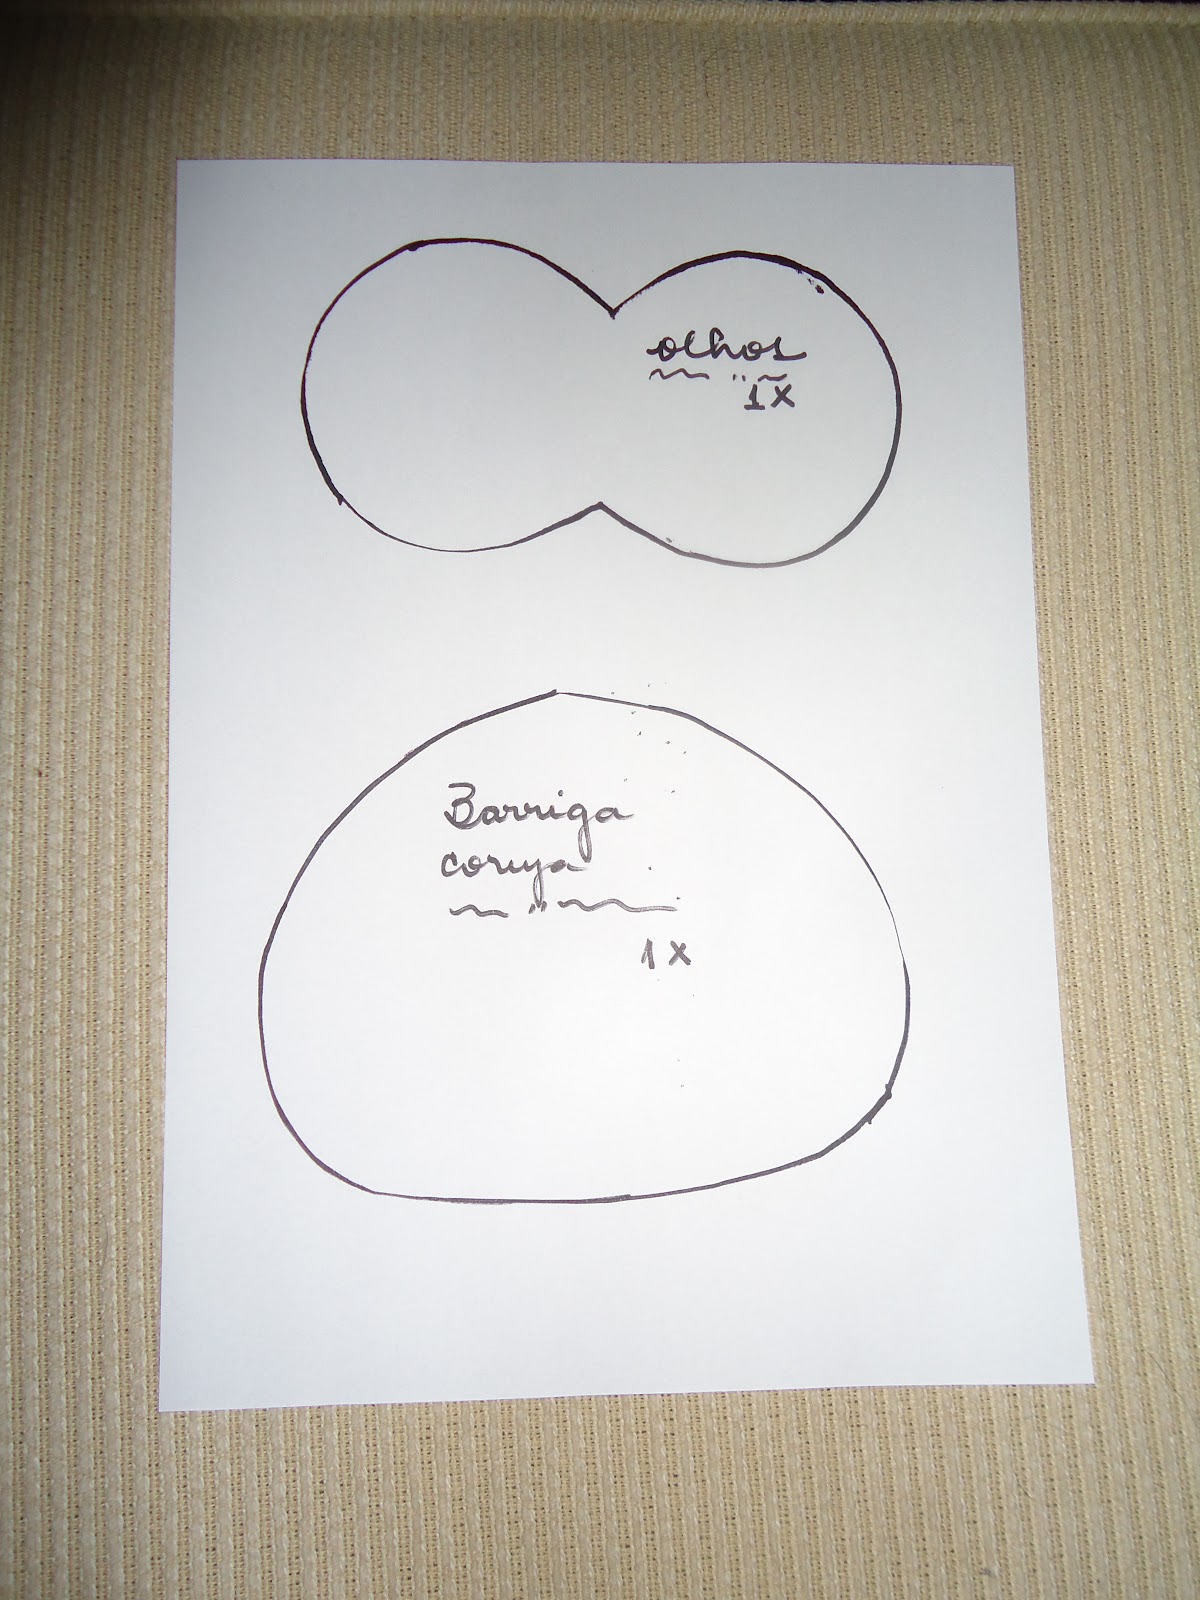 olhos
1X
Barriga
coruja
1X